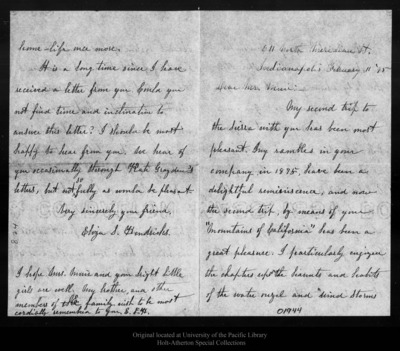 611 North Meridian St.
Indianapolis February 11" '95
Dear Mr. Muir:—
My second trip to
the Sierra with you has been most
pleasant. My rambles in your
company in 1875 have been a
delightful reminiscence, and now
the second trip, by means of your
"Mountains of California" has been a
great pleasure. I particularly enjoyed
the chapters upon the haunts and habits
of the water ouzel and "Wind Storms
01944
home-life once more.
It is a long time since I have
received a letter from you. Could you
not find time and inclination to
answer this letter? I should be most
happy to hear from you. We hear of
you occasionally through Kate Graydon's
letters, but not so fully as would be pleasant.
Very sincerely your friend,
Eloise J. Hendricks.
I hope Mrs. Muir and your bright little
girls are well. My mother, and other
members of the family wish to be most
cordially remembered to you.
Original located at University of the Pacific Library
Holt-Atherton Special Collections